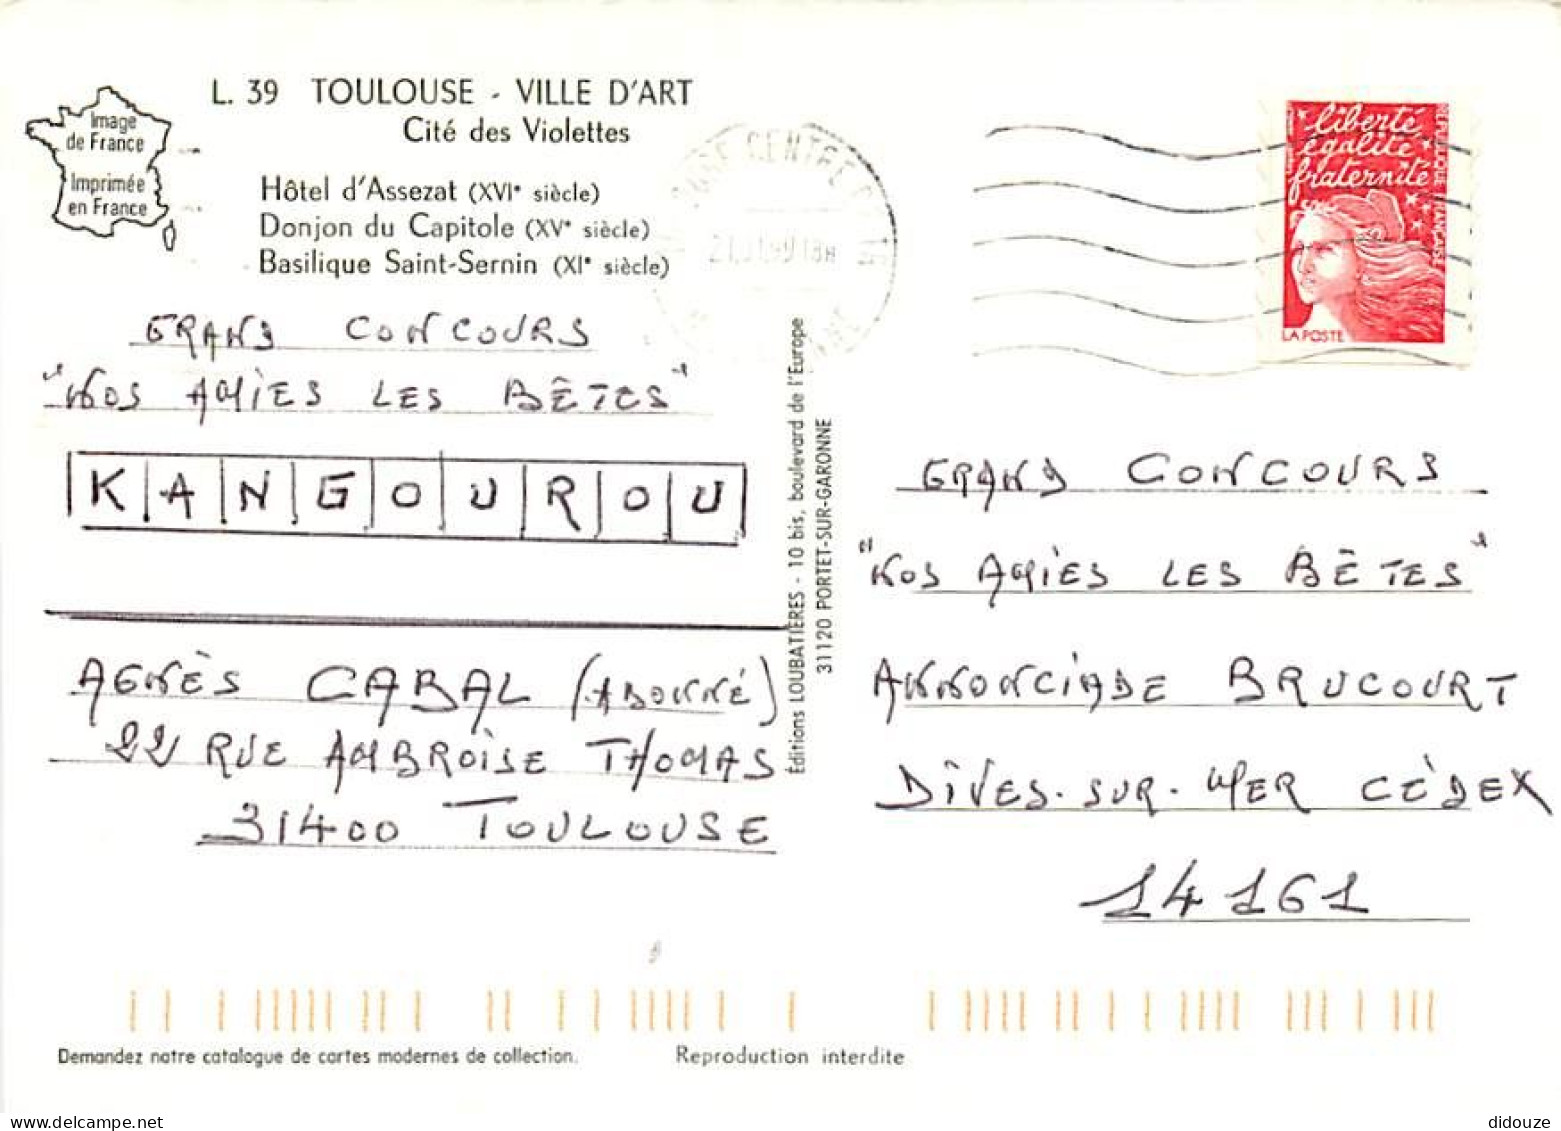 L. 39 TOULOUSE - VILLE D'ART
Cité des Violettes
Image
de France
Imprimée
en France
Hôtel d'Assezat (XVIe siècle)
Donjon du Capitole (XVe siècle)
Basilique Saint-Sernin (XIe siècle)
GRAND CONCOURS
"NOS AMIES LES BÊTES"
KANGOUROU
AGNÈS CABAL (ABONNÉ)
22 RUE AMBROISE THOMAS
31400 TOULOUSE
Editions LOUBATIERES - 10 bis, boulevard de l'Europe
31120 PORTET-SUR-GARONNE
liberté
égalité
fraternité
REPUBLIQUE FRANÇAISE
LA POSTE
GRAND CONCOURS
"NOS AMIES LES BÊTES"
ANNONCIADE BRUCOURT
DÎVES-SUR-MER CÉDEX
14161
Demandez notre catalogue de cartes modernes de collection.
Reproduction interdite
www.delcampe.net
didouze